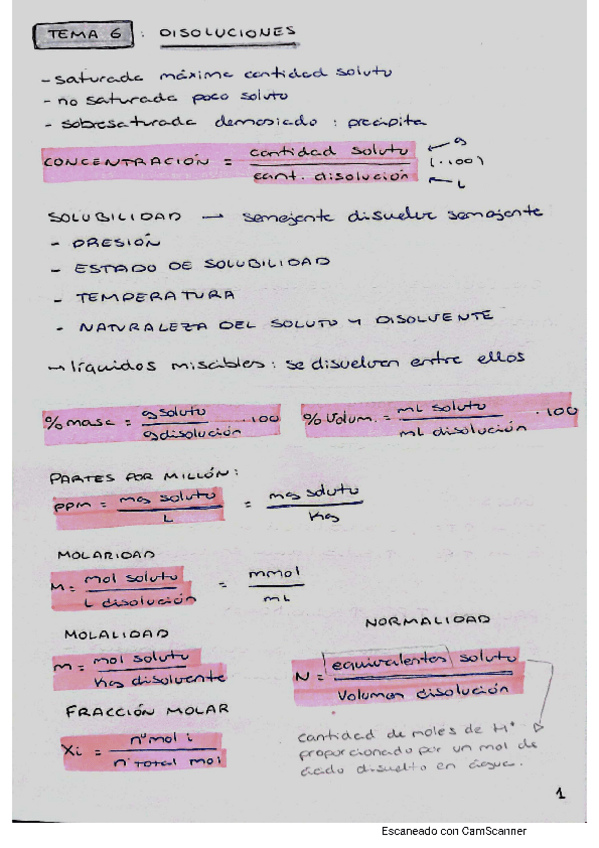 TEMA 6 : DISOLUCIONES
- saturada máxima cantidad soluto
- no saturada poco soluto
- sobresaturada demasiado : precipita
CONCENTRACIÓN = cantidad soluto / cant. disolución (·100) ← g ← L
SOLUBILIDAD → semejante disuelve semejante
- PRESIÓN
- ESTADO DE SOLUBILIDAD
- TEMPERATURA
- NATURALEZA DEL SOLUTO Y DISOLVENTE
→ líquidos miscibles : se disuelven entre ellos
% masa = g soluto / g disolución · 100
% Volum. = mL soluto / mL disolución · 100
PARTES POR MILLÓN :
ppm = mg soluto / L = mg soluto / Kg
MOLARIDAD
M = mol soluto / L disolución = mmol / mL
MOLALIDAD
m = mol soluto / Kg disolvente
NORMALIDAD
N = equivalentes soluto / Volumen disolución
cantidad de moles de H⁺
proporcionado por un mol de
ácido disuelto en água.
FRACCIÓN MOLAR
Xi = nº mol i / nº TOTAL mol
1
Escaneado con CamScanner